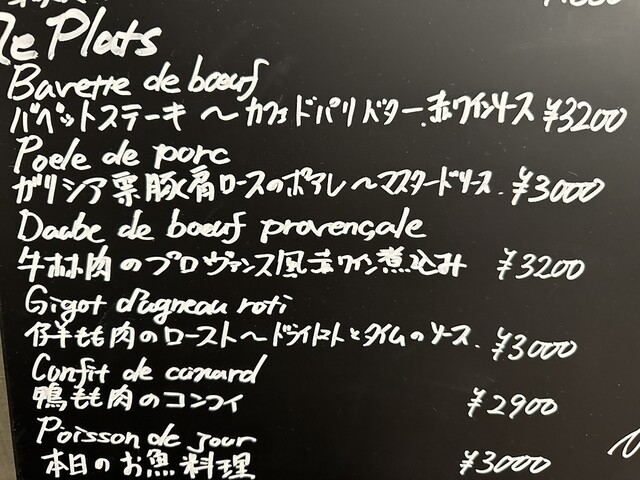 Le Plats
Bavette de bœuf
バベットステーキ ～ カフェドパリバター、赤ワインソース ¥3200
Poele de porc
ガリシア栗豚肩ロースのポアレ ～マスタードソース. ¥3000
Daube de boeuf provençale
牛ホホ肉のプロヴァンス風赤ワイン煮込み ¥3200
Gigot d'agneau roti
仔羊もも肉のロースト～ドライトマトとタイムのソース. ¥3000
Confit de canard
鴨もも肉のコンフィ ¥2900
Poisson de jour
本日のお魚料理 ¥3000